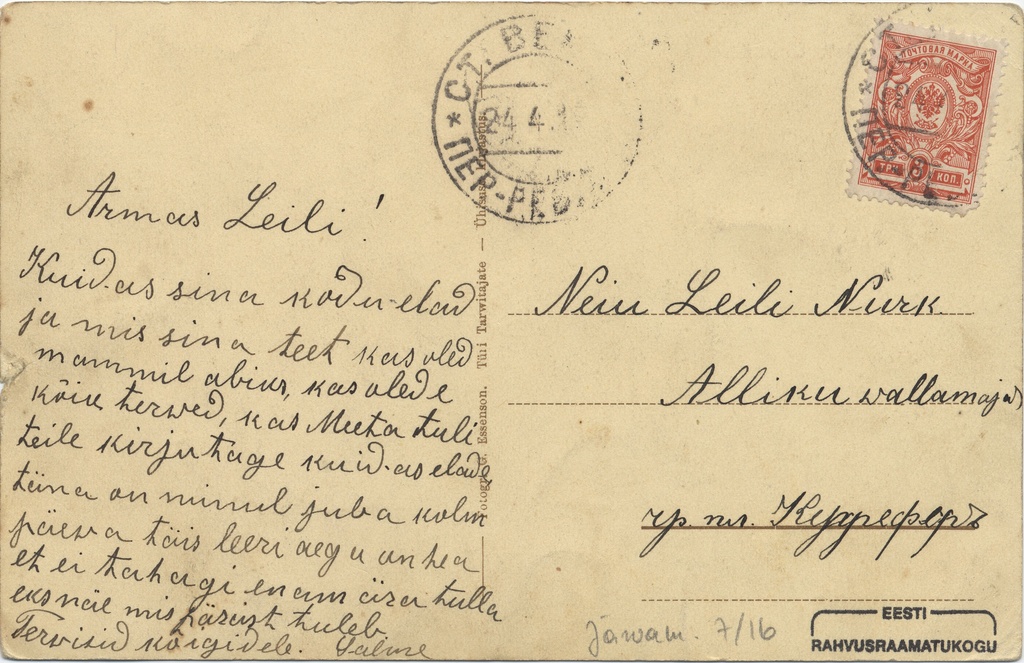 Armas Leili!
Kuidas sina kodu elad
ja mis sina teet kas oled
mammil abius, kas olede
kõik terwed, kas Meeta tuli
teile kirjutage kuidas elade
täna on minul juba kolm
päewa täis leeri aega on hea
et ei tahagi enam ära tulla
eks näe mis pärast tuleb
Terwisid kõigidele. Salme
СТ. ВЕ
24 4 1
ПЕР-РЕВ
Fotogr. G. Essenson. Türi Tarwitajate — Ühisus
ПОЧТОВАЯ МАРКА
3
ТРИ КОП.
ПЕР
Neiu Leili Nurk
Alliku wallamajad
чр. пл.
Järwam. 7/16
EESTI
RAHVUSRAAMATUKOGU